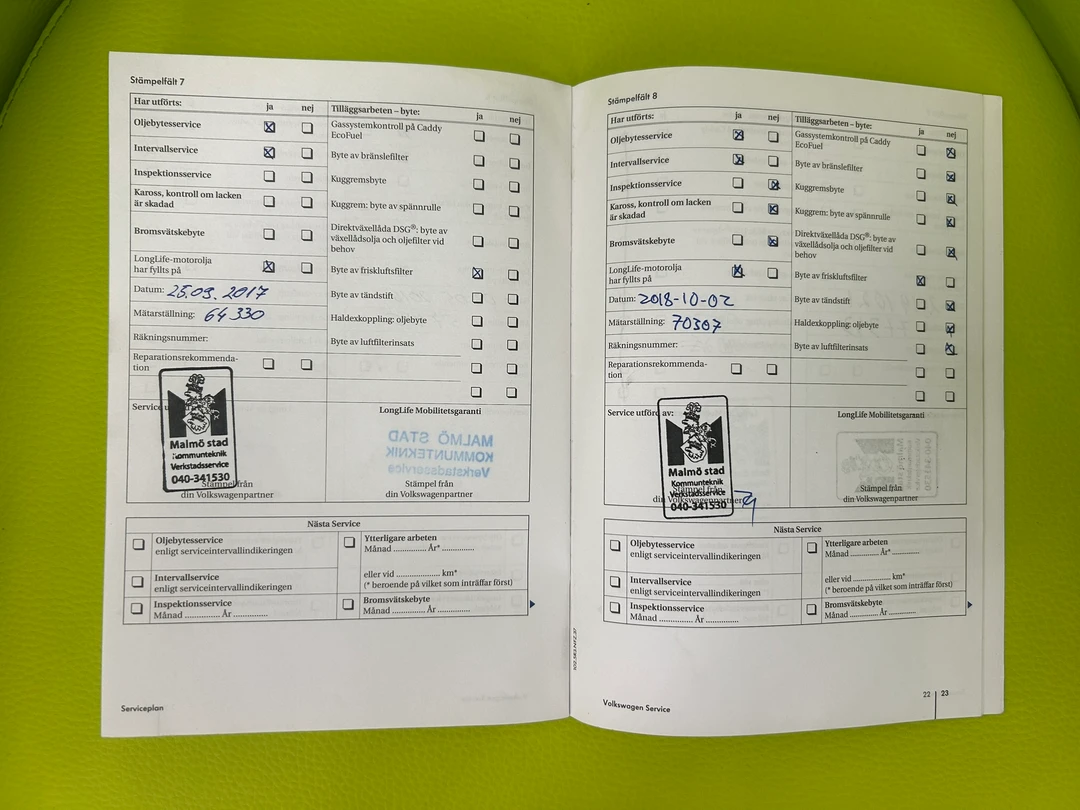 Stämpelfält 7
Har utförts: ja nej
Oljebytesservice
Intervallservice
Inspektionsservice
Kaross, kontroll om lacken
är skadad
Bromsvätskebyte
LongLife-motorolja
har fyllts på
Datum: 25.09.2017
Mätarställning: 64330
Räkningsnummer:
Reparationsrekommenda-
tion
Tilläggsarbeten – byte: ja nej
Gassystemkontroll på Caddy
EcoFuel
Byte av bränslefilter
Kuggremsbyte
Kuggrem: byte av spännrulle
Direktväxellåda DSG®: byte av
växellådsolja och oljefilter vid
behov
Byte av friskluftsfilter
Byte av tändstift
Haldexkoppling: oljebyte
Byte av luftfilterinsats
Service
Malmö stad
Kommunteknik
Verkstadsservice
040-341530
Stämpel från
din Volkswagenpartner
LongLife Mobilitetsgaranti
MALMÖ STAD
KOMMUNTEKNIK
Verkstadsservice
Stämpel från
din Volkswagenpartner
Nästa Service
Oljebytesservice
enligt serviceintervallindikeringen
Intervallservice
enligt serviceintervallindikeringen
Inspektionsservice
Månad .............. År ..............
Ytterligare arbeten
Månad ............. År* .............
eller vid ................. km*
(* beroende på vilket som inträffar först)
Bromsvätskebyte
Månad ............. År .............
Serviceplan
Stämpelfält 8
Har utförts: ja nej
Oljebytesservice
Intervallservice
Inspektionsservice
Kaross, kontroll om lacken
är skadad
Bromsvätskebyte
LongLife-motorolja
har fyllts på
Datum: 2018-10-02
Mätarställning: 70307
Räkningsnummer:
Reparationsrekommenda-
tion
Tilläggsarbeten – byte: ja nej
Gassystemkontroll på Caddy
EcoFuel
Byte av bränslefilter
Kuggremsbyte
Kuggrem: byte av spännrulle
Direktväxellåda DSG®: byte av
växellådsolja och oljefilter vid
behov
Byte av friskluftsfilter
Byte av tändstift
Haldexkoppling: oljebyte
Byte av luftfilterinsats
Service utförd av:
Malmö stad
Kommunteknik
Verkstadsservice
040-341530
Stämpel från
din Volkswagenpartner
LongLife Mobilitetsgaranti
Stämpel från
din Volkswagenpartner
Nästa Service
Oljebytesservice
enligt serviceintervallindikeringen
Intervallservice
enligt serviceintervallindikeringen
Inspektionsservice
Månad .............. År ..............
Ytterligare arbeten
Månad ............. År* .............
eller vid ................. km*
(* beroende på vilket som inträffar först)
Bromsvätskebyte
Månad ............. År .............
Volkswagen Service
22 | 23